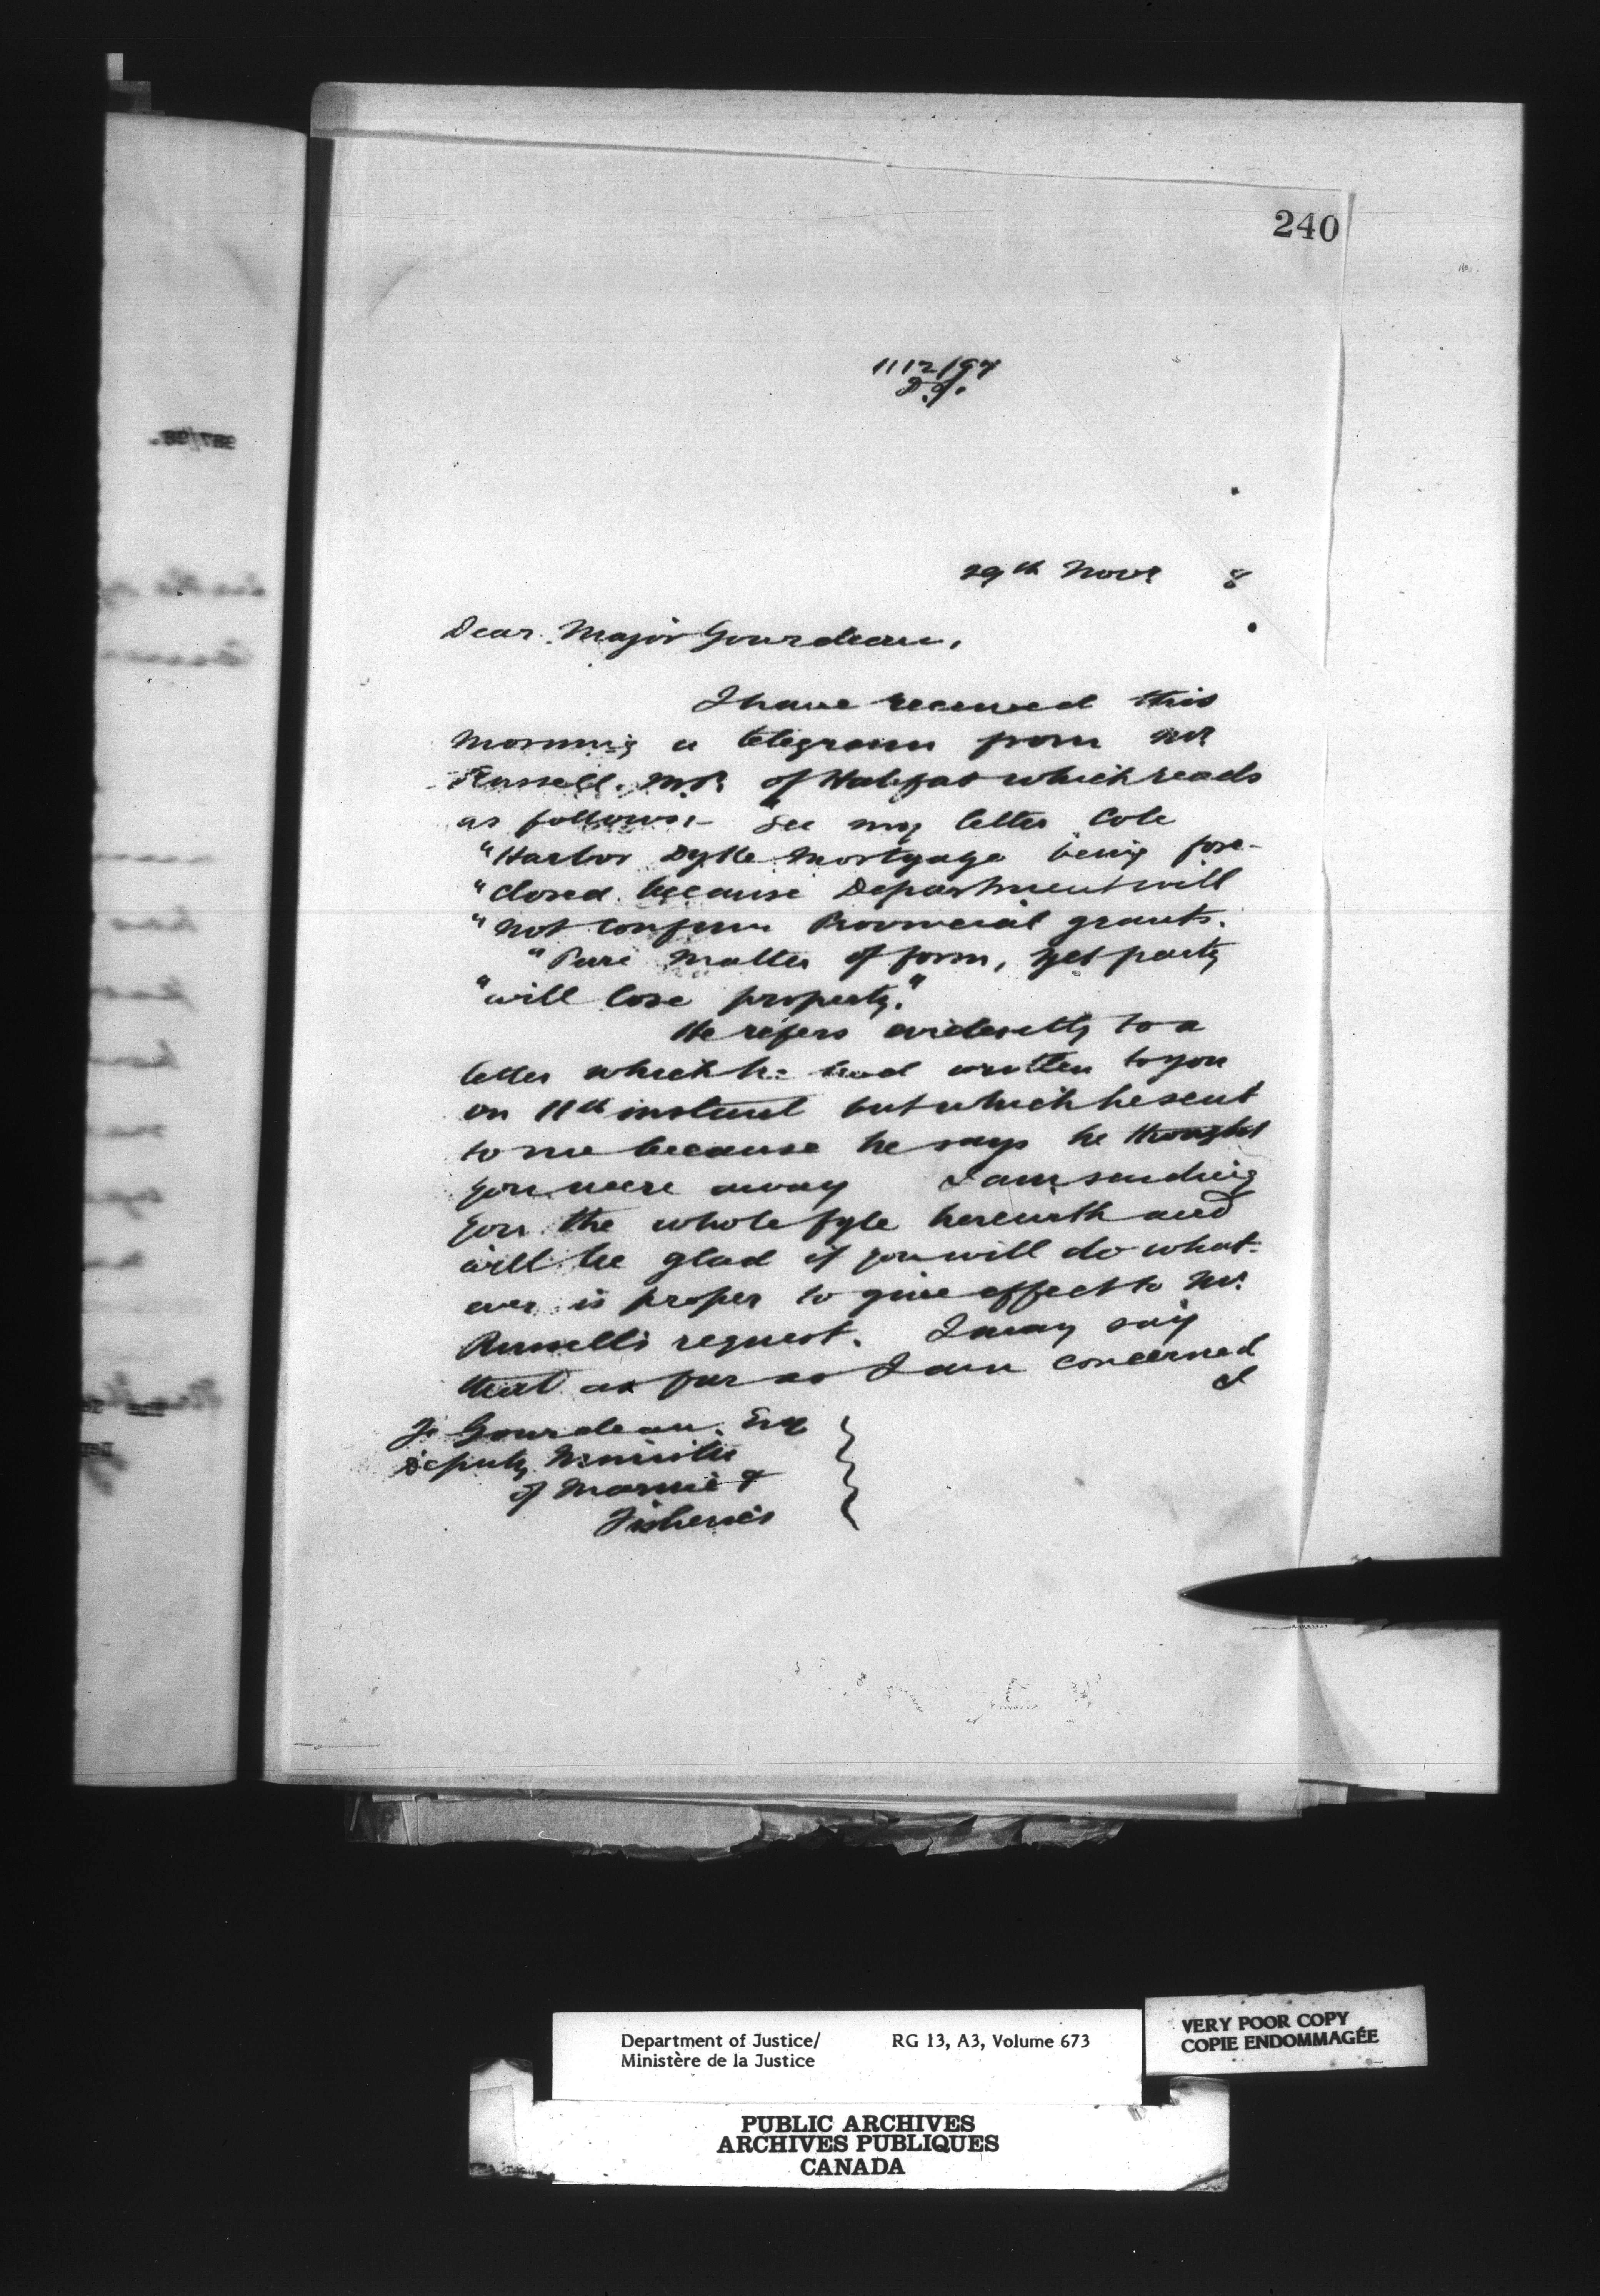 240
1112/97
D.J.
29th Novr 8
Dear Major Gourdeau,
I have received this
morning a telegram from Mr
Russell. M.P. of Halifax which reads
as follows:- See my letter Cole
"Harbor Dyke Mortgage being fore-
"closed because Department will
"not confirm Provincial grants.
"Pure matter of form, yet party
"will lose property."
He refers evidently to a
letter which he had written to you
on 11th instant but which he sent
to me because he says he thought
you were away I am sending
you the whole fyle herewith and
will be glad if you will do what-
ever is proper to give effect to Mr.
Russell's request. I may say
that as far as I am concerned
I
F. Gourdeau, Esq
Deputy Minister
of Marine &
Fisheries
Department of Justice/ RG 13, A3, Volume 673
Ministère de la Justice
VERY POOR COPY
COPIE ENDOMMAGÉE
PUBLIC ARCHIVES
ARCHIVES PUBLIQUES
CANADA